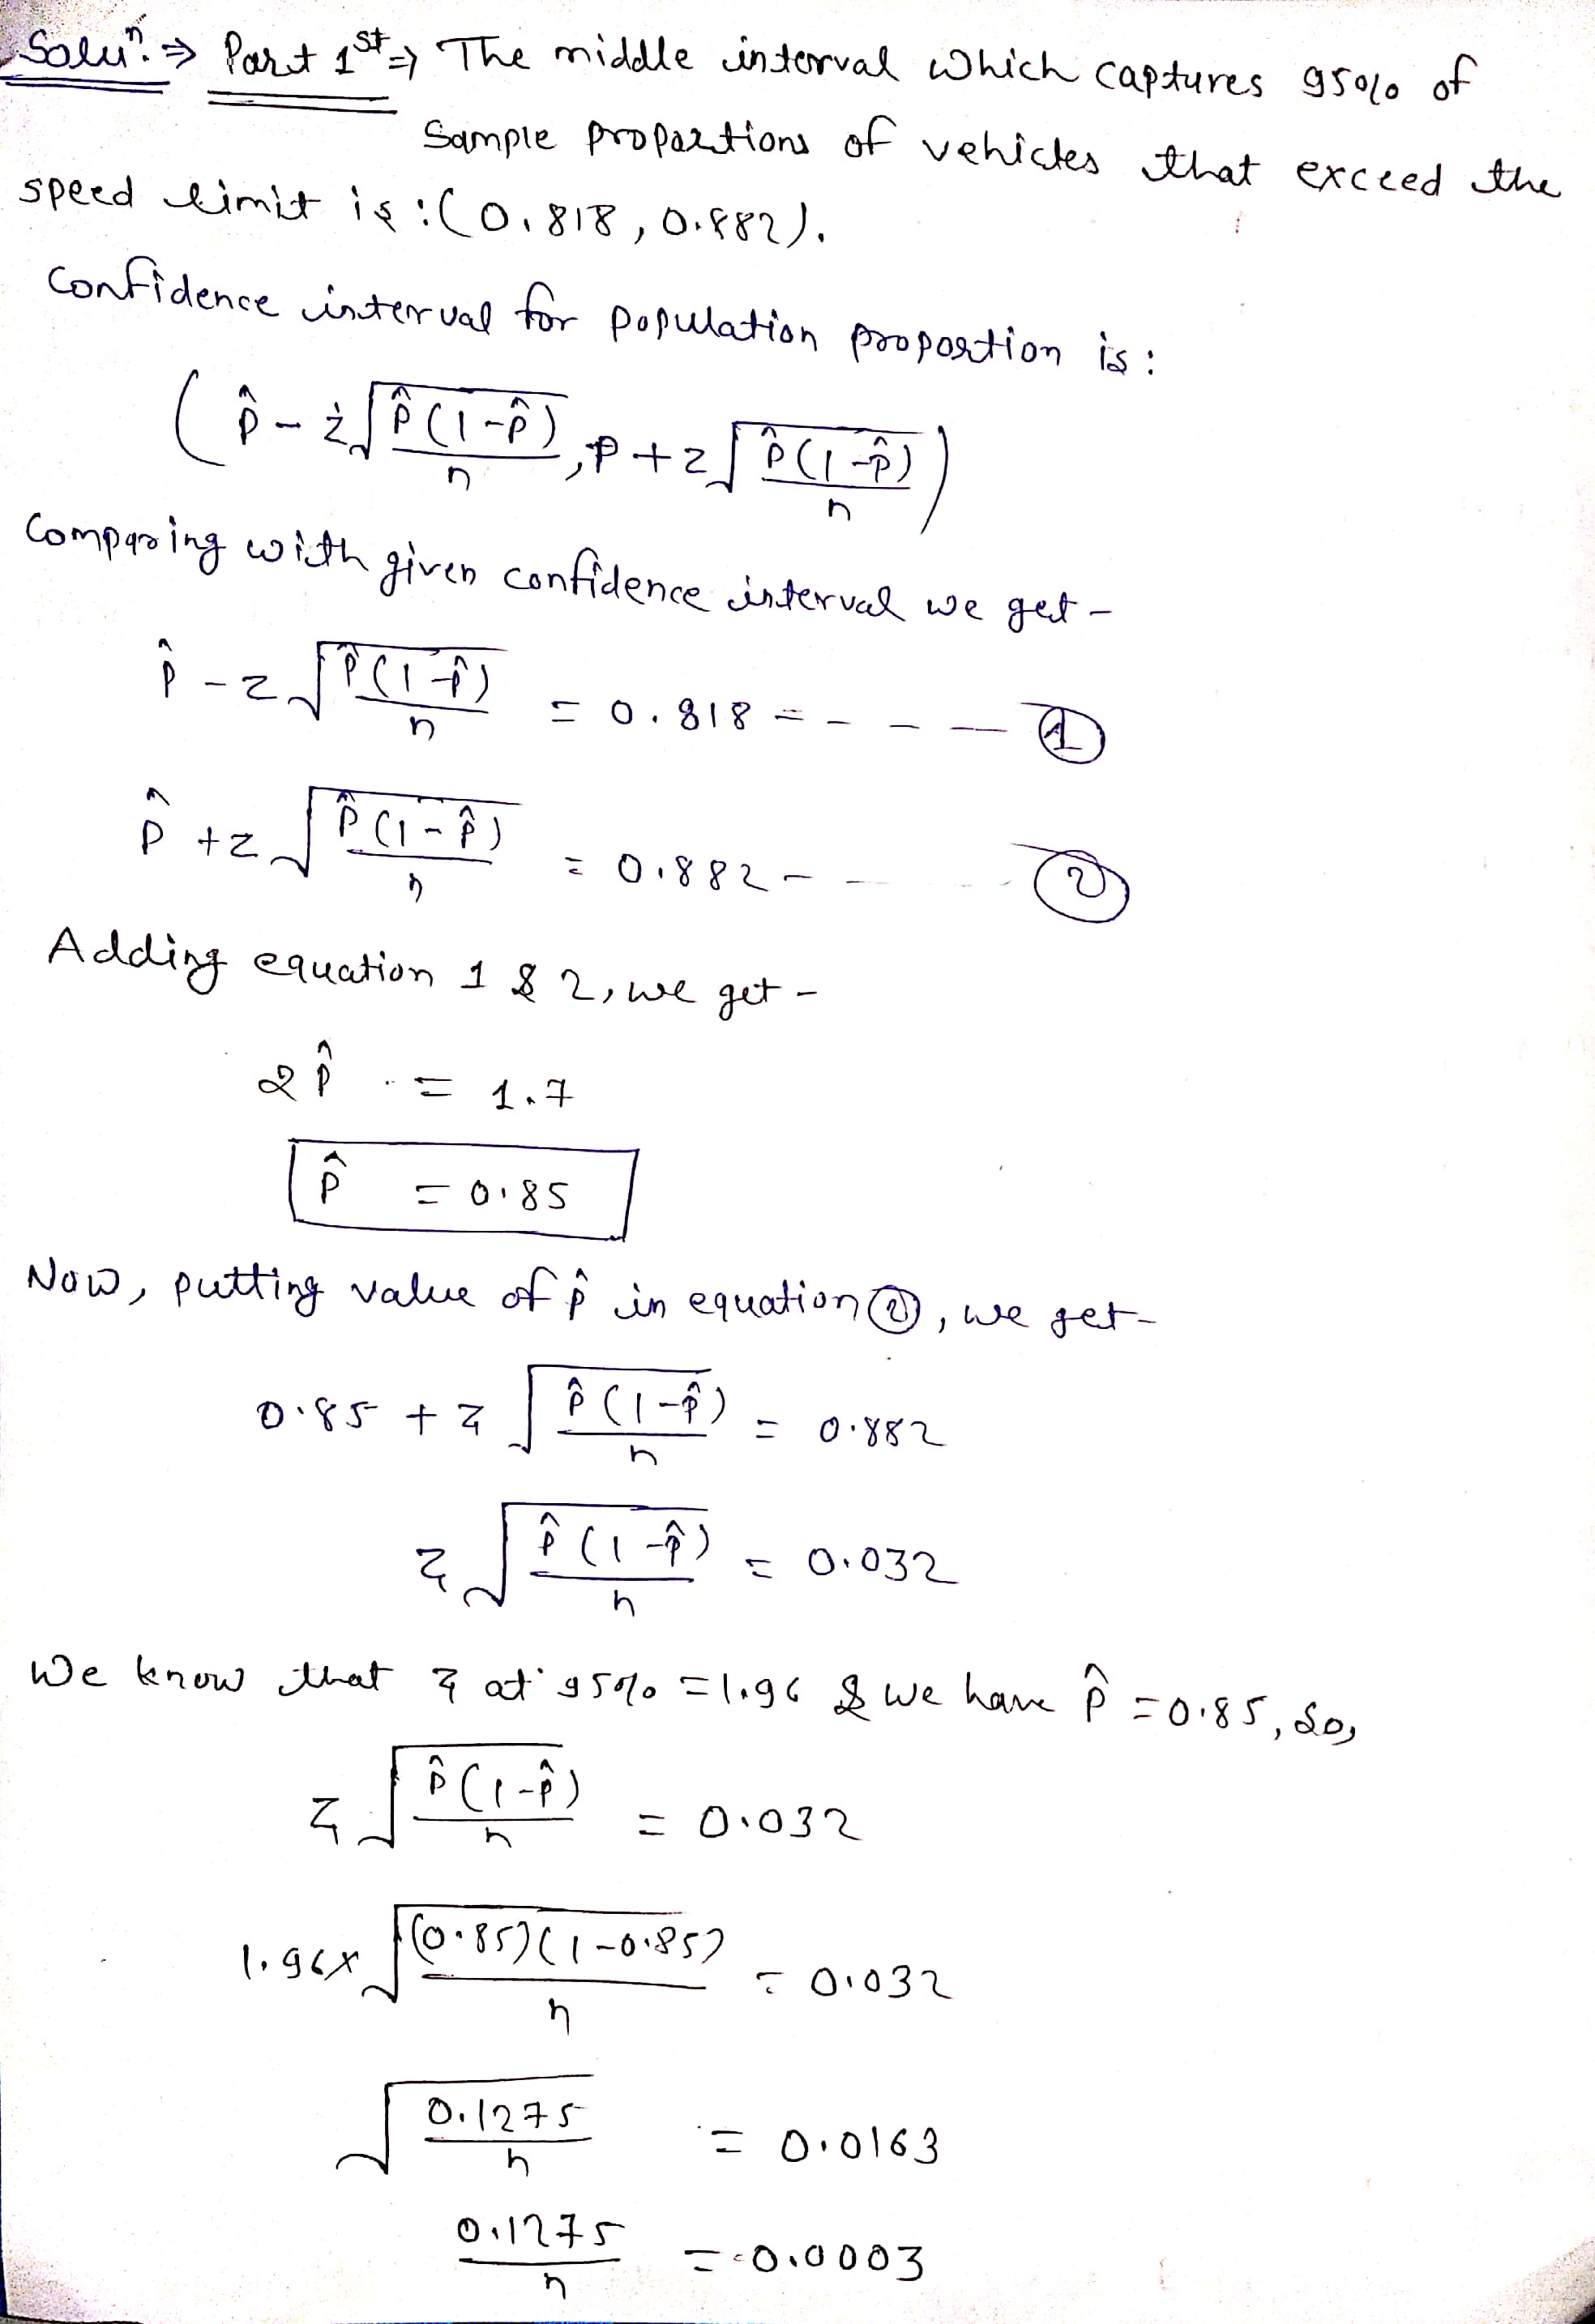 Soluⁿ. ⇒ Part 1st ⇒ The middle interval which captures 95% of
Sample proportions of vehicles that exceed the
speed limit is : (0.818, 0.882).
Confidence interval for population proportion is :
( p̂ - z√(p̂(1-p̂)/n), p + z√(p̂(1-p̂)/n) )
Comparing with given confidence interval we get -
p̂ - z√(p̂(1-p̂)/n) = 0.818 - - - - ①
p̂ + z√(p̂(1-p̂)/n) = 0.882 - - - ②
Adding equation 1 & 2, we get -
2p̂ = 1.7
p̂ = 0.85
Now, putting value of p̂ in equation ②, we get -
0.85 + z√(p̂(1-p̂)/n) = 0.882
z√(p̂(1-p̂)/n) = 0.032
We know that z at 95% = 1.96 & we have p̂ = 0.85, So,
z√(p̂(1-p̂)/n) = 0.032
1.96 × √((0.85)(1-0.85)/n) = 0.032
√(0.1275/n) = 0.0163
0.1275/n = 0.0003